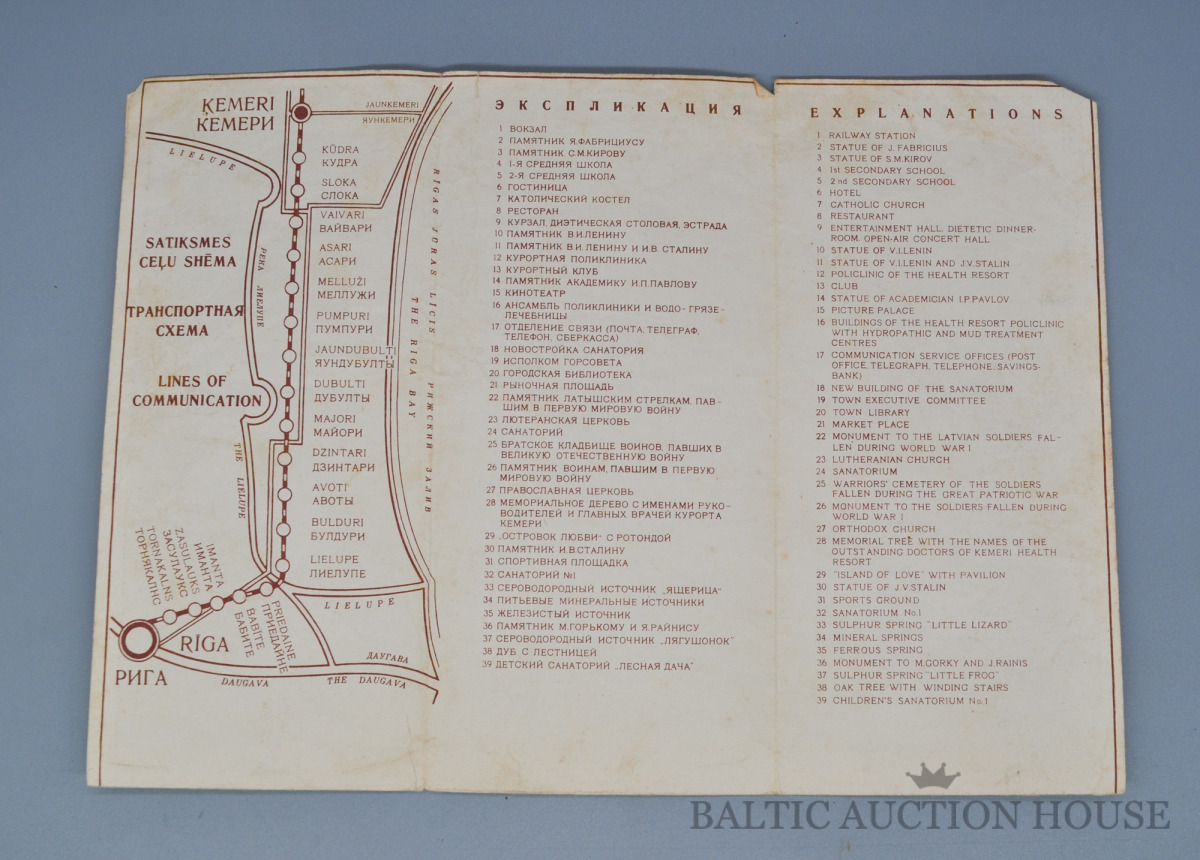 ĶEMERI
ĶЕМЕРИ
JAUNĶEMERI
ЯУНКЕМЕРИ
LIELUPE
KŪDRA
КУДРА
SLOKA
СЛОКА
VAIVARI
ВАЙВАРИ
ASARI
АСАРИ
MELLUŽI
МЕЛЛУЖИ
PUMPURI
ПУМПУРИ
JAUNDUBULTI
ЯУНДУБУЛТЫ
DUBULTI
ДУБУЛТЫ
MAJORI
МАЙОРИ
DZINTARI
ДЗИНТАРИ
AVOTI
АВОТЫ
BULDURI
БУЛДУРИ
LIELUPE
ЛИЕЛУПЕ
SATIKSMES
CEĻU SHĒMA
ТРАНСПОРТНАЯ
СХЕМА
LINES OF
COMMUNICATION
РЕКА ЛИЕЛУПЕ
THE LIELUPE
RĪGAS JŪRAS LĪCIS РИЖСКИЙ ЗАЛИВ
THE RIGA BAY
IMANTA
ИМАНТА
ZASULAUKS
ЗАСУЛАУКС
TORNAKALNS
ТОРНЯКАЛНС
PRIEDAINE
ПРИЕДАЙНЕ
BABĪTE
БАБИТЕ
LIELUPE
RĪGA
РИГА
ДАУГАВА
DAUGAVA
THE DAUGAVA
ЭКСПЛИКАЦИЯ
1 ВОКЗАЛ
2 ПАМЯТНИК Я.ФАБРИЦИУСУ
3 ПАМЯТНИК С.М.КИРОВУ
4 1-Я СРЕДНЯЯ ШКОЛА
5 2-Я СРЕДНЯЯ ШКОЛА
6 ГОСТИНИЦА
7 КАТОЛИЧЕСКИЙ КОСТЕЛ
8 РЕСТОРАН
9 КУРЗАЛ, ДИЭТИЧЕСКАЯ СТОЛОВАЯ, ЭСТРАДА
10 ПАМЯТНИК В.И.ЛЕНИНУ
11 ПАМЯТНИК В.И. ЛЕНИНУ И И.В. СТАЛИНУ
12 КУРОРТНАЯ ПОЛИКЛИНИКА
13 КУРОРТНЫЙ КЛУБ
14 ПАМЯТНИК АКАДЕМИКУ И.П.ПАВЛОВУ
15 КИНОТЕАТР
16 АНСАМБЛЬ ПОЛИКЛИНИКИ И ВОДО-ГРЯЗЕ-
ЛЕЧЕБНИЦЫ
17 ОТДЕЛЕНИЕ СВЯЗИ (ПОЧТА, ТЕЛЕГРАФ,
ТЕЛЕФОН, СБЕРКАССА)
18 НОВОСТРОЙКА САНАТОРИЯ
19 ИСПОЛКОМ ГОРСОВЕТА
20 ГОРОДСКАЯ БИБЛИОТЕКА
21 РЫНОЧНАЯ ПЛОЩАДЬ
22 ПАМЯТНИК ЛАТЫШСКИМ СТРЕЛКАМ, ПАВ-
ШИМ В ПЕРВУЮ МИРОВУЮ ВОЙНУ
23 ЛЮТЕРАНСКАЯ ЦЕРКОВЬ
24 САНАТОРИЙ
25 БРАТСКОЕ КЛАДБИЩЕ ВОИНОВ, ПАВШИХ В
ВЕЛИКУЮ ОТЕЧЕСТВЕННУЮ ВОЙНУ
26 ПАМЯТНИК ВОИНАМ, ПАВШИМ В ПЕРВУЮ
МИРОВУЮ ВОЙНУ
27 ПРАВОСЛАВНАЯ ЦЕРКОВЬ
28 МЕМОРИАЛЬНОЕ ДЕРЕВО С ИМЕНАМИ РУКО-
ВОДИТЕЛЕЙ И ГЛАВНЫХ ВРАЧЕЙ КУРОРТА
КЕМЕРИ
29 „ОСТРОВОК ЛЮБВИ“ С РОТОНДОЙ
30 ПАМЯТНИК И.В.СТАЛИНУ
31 СПОРТИВНАЯ ПЛОЩАДКА
32 САНАТОРИЙ №1
33 СЕРОВОДОРОДНЫЙ ИСТОЧНИК „ЯЩЕРИЦА“
34 ПИТЬЕВЫЕ МИНЕРАЛЬНЫЕ ИСТОЧНИКИ
35 ЖЕЛЕЗИСТЫЙ ИСТОЧНИК
36 ПАМЯТНИК М.ГОРЬКОМУ И Я.РАЙНИСУ
37 СЕРОВОДОРОДНЫЙ ИСТОЧНИК „ЛЯГУШОНОК“
38 ДУБ С ЛЕСТНИЦЕЙ
39 ДЕТСКИЙ САНАТОРИЙ „ЛЕСНАЯ ДАЧА“
EXPLANATIONS
1 RAILWAY STATION
2 STATUE OF J. FABRICIUS
3 STATUE OF S.M.KIROV
4 1st SECONDARY SCHOOL
5 2nd SECONDARY SCHOOL
6 HOTEL
7 CATHOLIC CHURCH
8 RESTAURANT
9 ENTERTAINMENT HALL, DIETETIC DINNER-
ROOM, OPEN-AIR CONCERT HALL
10 STATUE OF V.I.LENIN
11 STATUE OF V.I.LENIN AND J.V.STALIN
12 POLICLINIC OF THE HEALTH RESORT
13 CLUB
14 STATUE OF ACADEMICIAN I.P.PAVLOV
15 PICTURE PALACE
16 BUILDINGS OF THE HEALTH RESORT POLICLINIC
WITH HYDROPATHIC AND MUD TREATMENT
CENTRES
17 COMMUNICATION SERVICE OFFICES (POST
OFFICE, TELEGRAPH, TELEPHONE, SAVINGS-
BANK)
18 NEW BUILDING OF THE SANATORIUM
19 TOWN EXECUTIVE COMMITTEE
20 TOWN LIBRARY
21 MARKET PLACE
22 MONUMENT TO THE LATVIAN SOLDIERS FAL-
LEN DURING WORLD WAR I
23 LUTHERANIAN CHURCH
24 SANATORIUM
25 WARRIORS' CEMETERY OF THE SOLDIERS
FALLEN DURING THE GREAT PATRIOTIC WAR
26 MONUMENT TO THE SOLDIERS FALLEN DURING
WORLD WAR I
27 ORTHODOX CHURCH
28 MEMORIAL TREE WITH THE NAMES OF THE
OUTSTANDING DOCTORS OF KEMERI HEALTH
RESORT
29 "ISLAND OF LOVE" WITH PAVILION
30 STATUE OF J.V.STALIN
31 SPORTS GROUND
32 SANATORIUM No.1
33 SULPHUR SPRING "LITTLE LIZARD"
34 MINERAL SPRINGS
35 FERROUS SPRING
36 MONUMENT TO M.GORKY AND J.RAINIS
37 SULPHUR SPRING "LITTLE FROG"
38 OAK TREE WITH WINDING STAIRS
39 CHILDREN'S SANATORIUM No.1
BALTIC AUCTION HOUSE